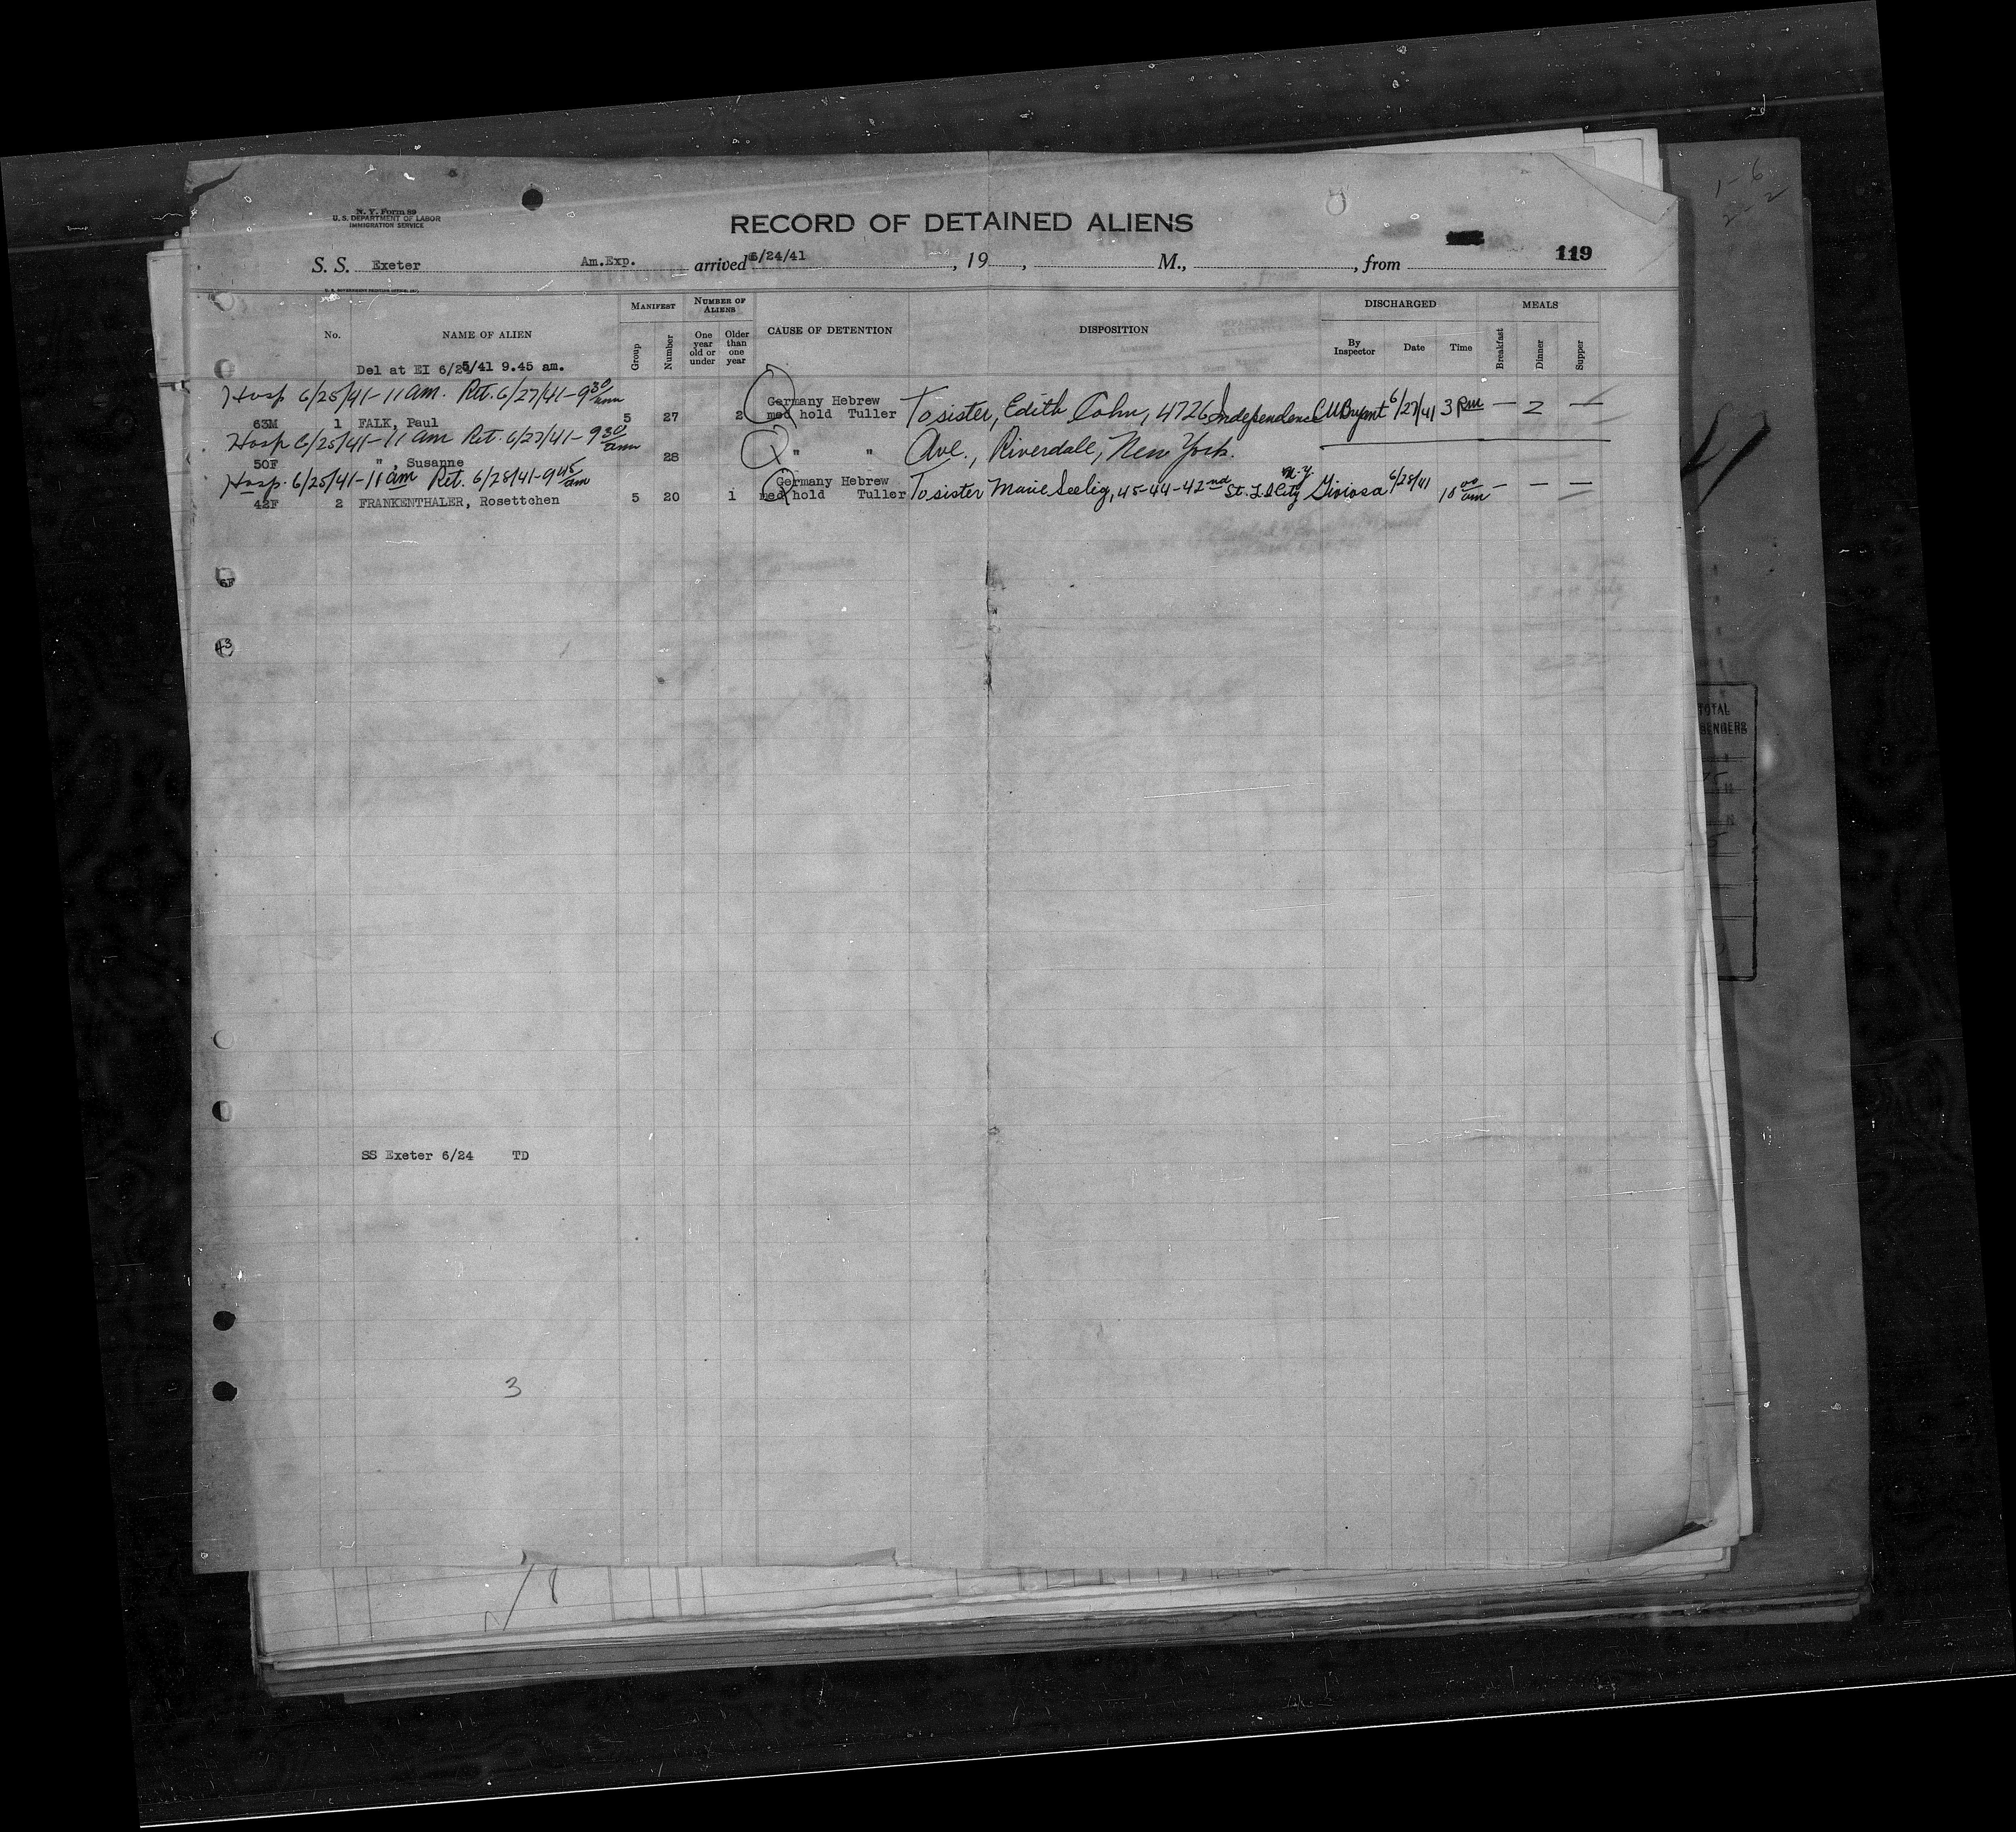 N. Y. Form 89
U. S. DEPARTMENT OF LABOR
IMMIGRATION SERVICE
RECORD OF DETAINED ALIENS
119
S. S. Exeter Am.Exp. arrived 6/24/41, 19, M., from
MANIFEST NUMBER OF ALIENS DISCHARGED MEALS
No. NAME OF ALIEN Group Number One year old or under Older than one year CAUSE OF DETENTION DISPOSITION By Inspector Date Time Breakfast Dinner Supper
Del at EI 6/25/41 9.45 am.
Hosp 6/25/41-11 am. Ret. 6/27/41-9 30 am
63M 1 FALK, Paul 5 27 2 Germany Hebrew med hold Tuller To sister, Edith Cohn, 4726 Independence CW Bryant 6/27/41 3 PM — 2 —
Hosp 6/25/41-11 am Ret. 6/27/41-9 30 am
50F " , Susanne 28 " " Ave., Riverdale, New York.
Hosp. 6/25/41-11 am Ret. 6/28/41-9 45 am
42F 2 FRANKENTHALER, Rosettchen 5 20 1 Germany Hebrew med hold Tuller To sister Marie Seelig, 45-44-42nd St. L.I. City N.Y. Gioiosa 6/28/41 10 00 am — — —
5F
43
SS Exeter 6/24 TD
3
1-6
2-2
TOTAL